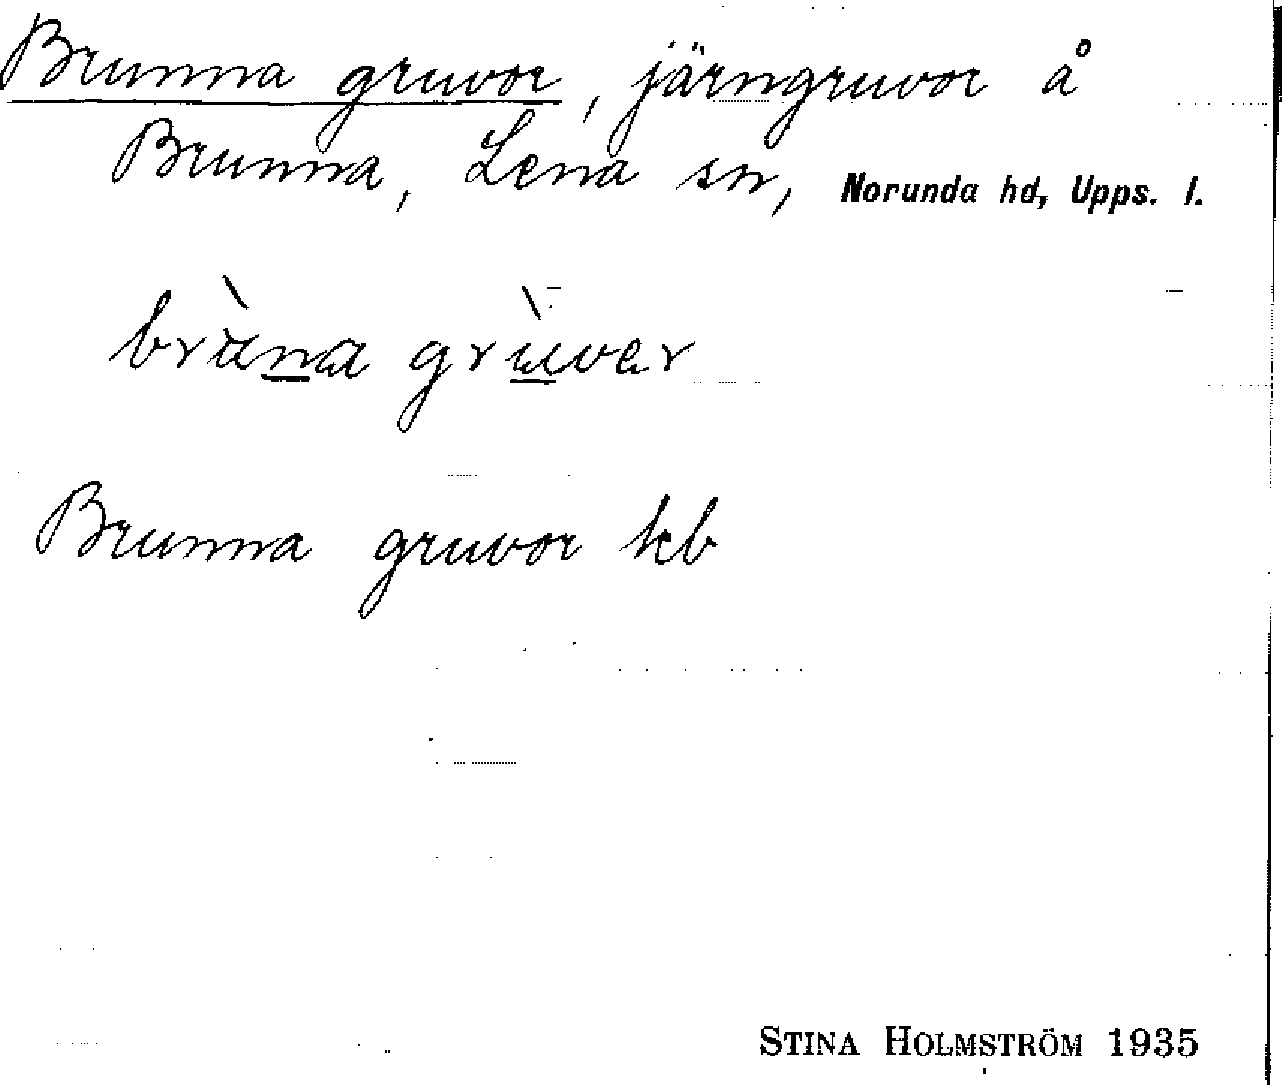 Brunna gruvor, järngruvor å
Brunna, Lena sn, Norunda hd, Upps. l.
bruna gruver
Brunna gruvor kb
STINA HOLMSTRÖM 1935